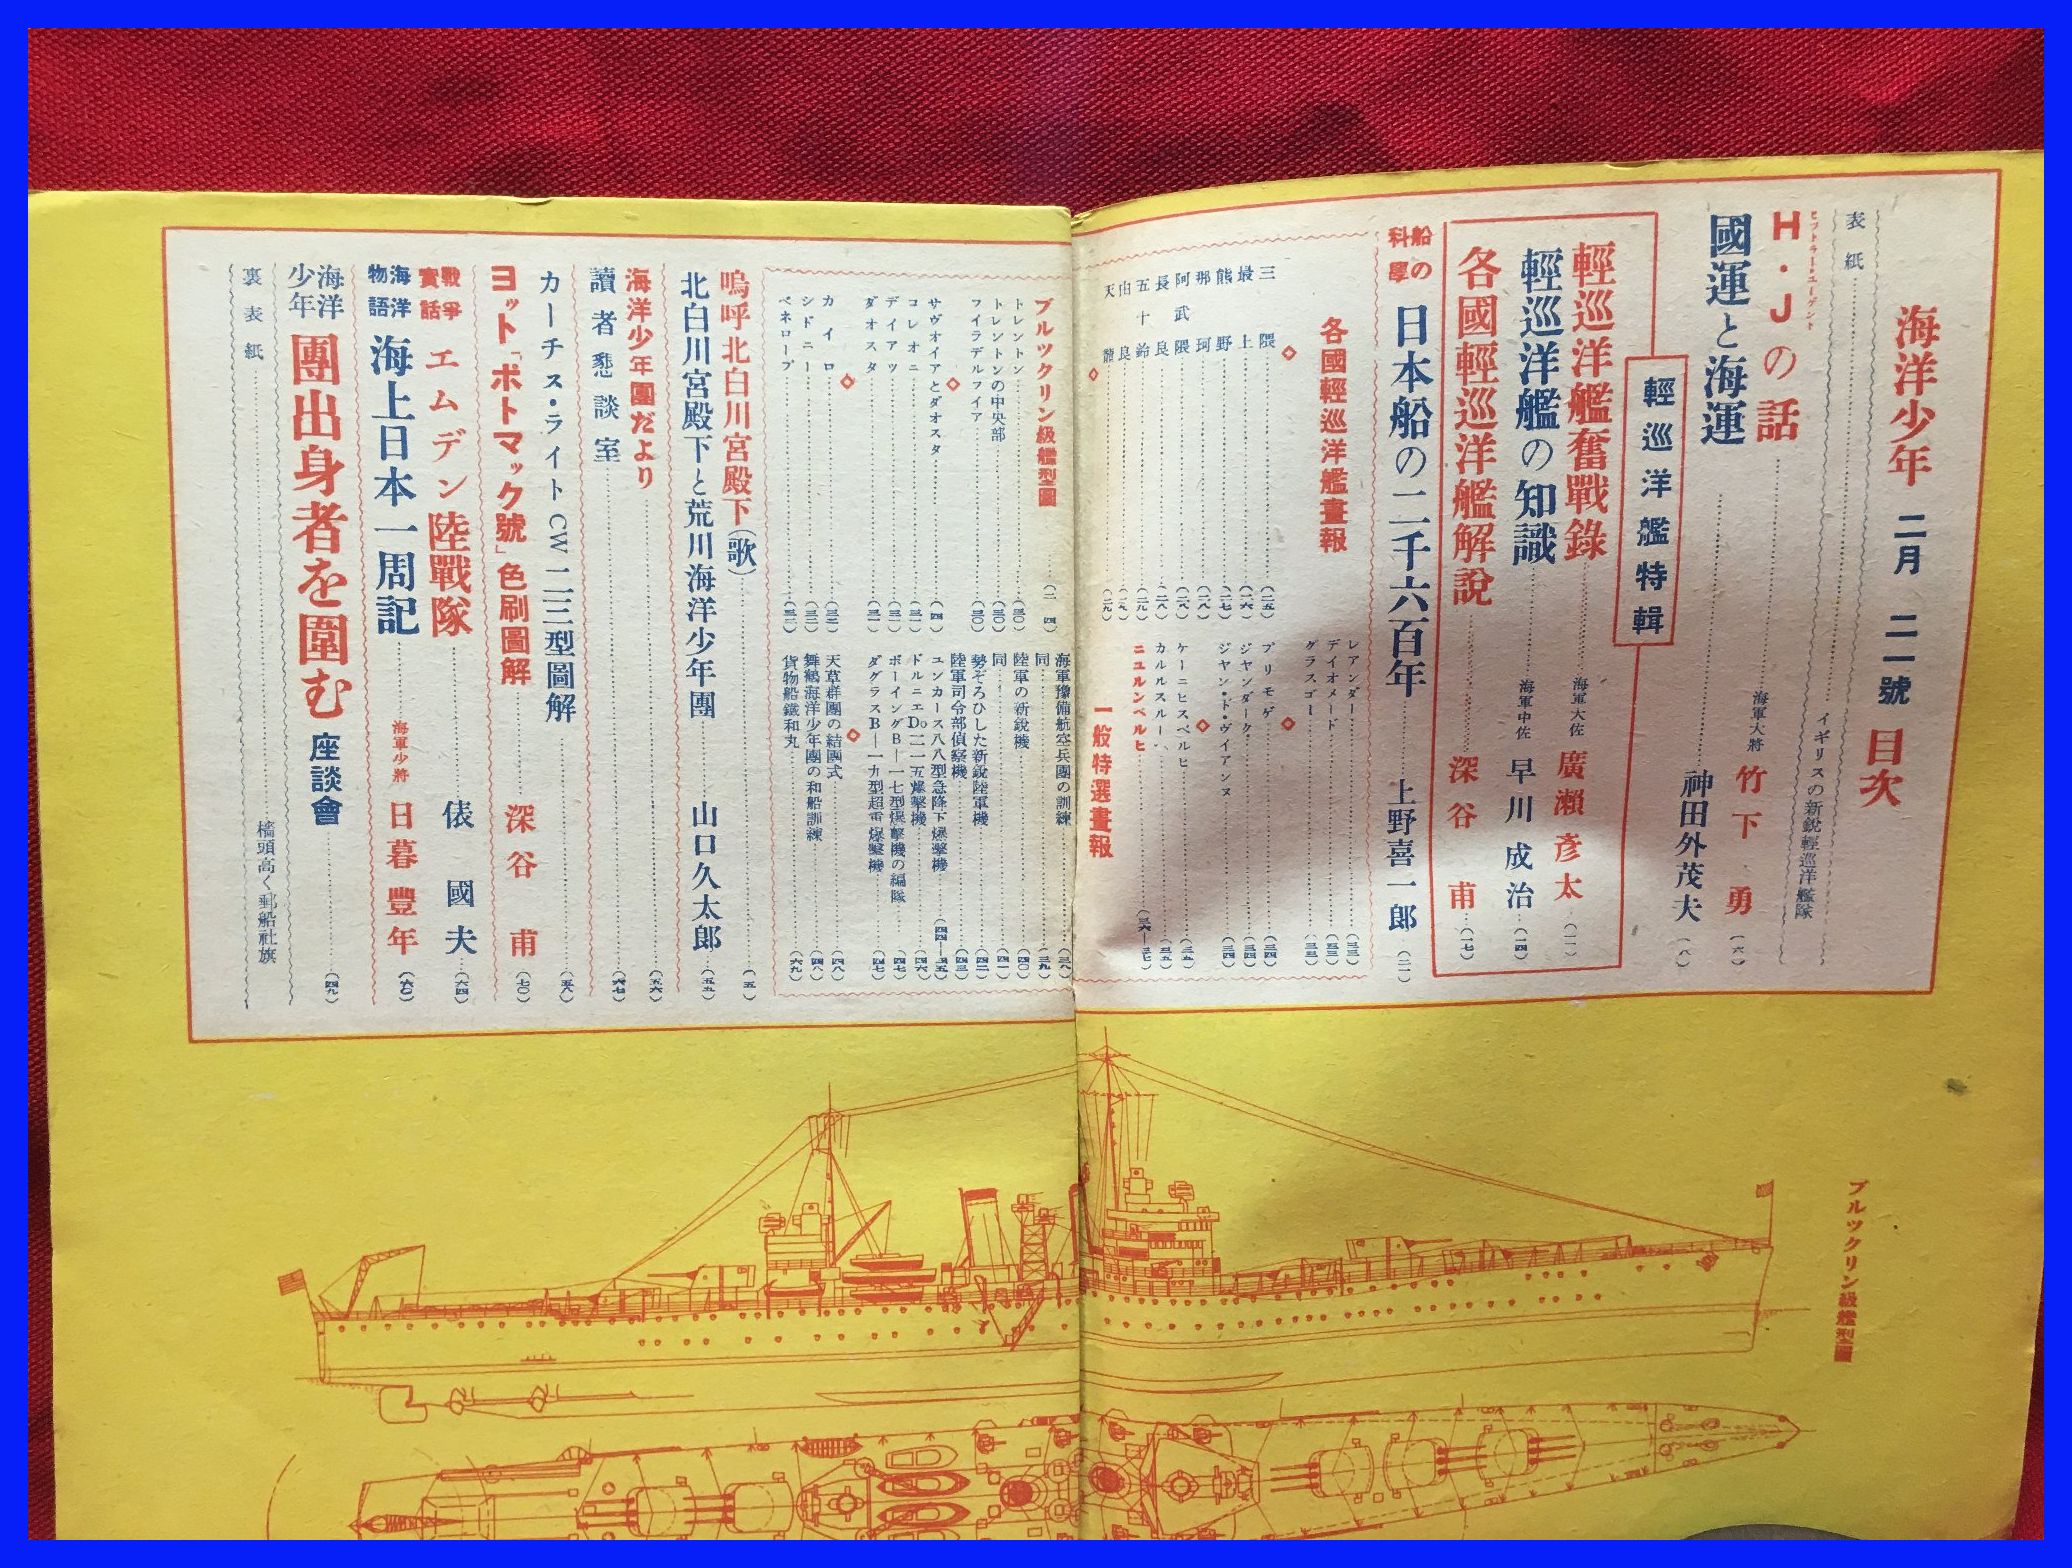 海洋少年 二月 二一號 目次
表紙 イギリスの新鋭輕巡洋艦隊
H・Jの話 海軍大將 竹下勇 (六)
ヒットラー・ユーゲント
國運と海運 神田外茂夫 (八)
輕巡洋艦特輯
輕巡洋艦奮戰錄 海軍大佐 廣瀬彦太 (一一)
輕巡洋艦の知識 海軍中佐 早川成治 (一四)
各國輕巡洋艦解說 深谷甫 (一七)
船の科學 日本船の二千六百年 上野喜一郎 (二一)
各國輕巡洋艦畫報
三隈 (二五)
最上 (二六)
熊野 (二七)
那珂 (二八)
阿武隈 (二八)
長良 (二八)
五十鈴 (二九)
由良 (二九)
天龍 (二九)
ブルツクリン級艦型圖 (二—四)
トレントン (三〇)
トレントンの中央部 (三〇)
フイラデルフイア (三〇)
サヴオイアとダオスタ (四)
コレオニ (三一)
デイアツ (三一)
ダオスタ (三一)
カイロ (三二)
シドニー (三二)
ペネロープ (三二)
レアンダー (三三)
デイオメード (三三)
グラスゴー (三三)
プリモゲ (三四)
ジヤンダーク (三四)
ジヤン・ド・ヴイアンヌ (三四)
ケーニヒスベルヒ (三五)
カルルスルー (三五)
ニユルンベルヒ (三六—三七)
一般特選畫報
海軍豫備航空兵團の訓練 (三八)
同 (三九)
陸軍の新銳機 (四〇)
同 (四一)
勢ぞろひした新銳陸軍機 (四二)
陸軍司令部偵察機 (四三)
ユンカース八八型急降下爆擊機 (四四—四五)
ドルニエDo二一五爆擊機 (四六)
ボーイングB—一七型爆擊機の編隊 (四七)
ダグラスB—一九型超重爆擊機 (四七)
天草群團の結團式 (四八)
舞鶴海洋少年團の和船訓練 (四八)
貨物船鐵和丸 (六九)
嗚呼北白川宮殿下(歌) (五)
北白川宮殿下と荒川海洋少年團 山口久太郎 (五五)
海洋少年團だより (五六)
讀者懇談室 (六七)
カーチス・ライトCW二三型圖解 (五八)
ヨット「ポトマック號」色刷圖解 深谷甫 (七〇)
戰爭實話 エムデン陸戰隊 俵國夫 (六四)
海洋物語 海上日本一周記 海軍少將 日暮豐年 (六〇)
海洋少年團出身者を圍む座談會 (四九)
裏表紙 檣頭高く郵船社旗
ブルツクリン級艦型圖